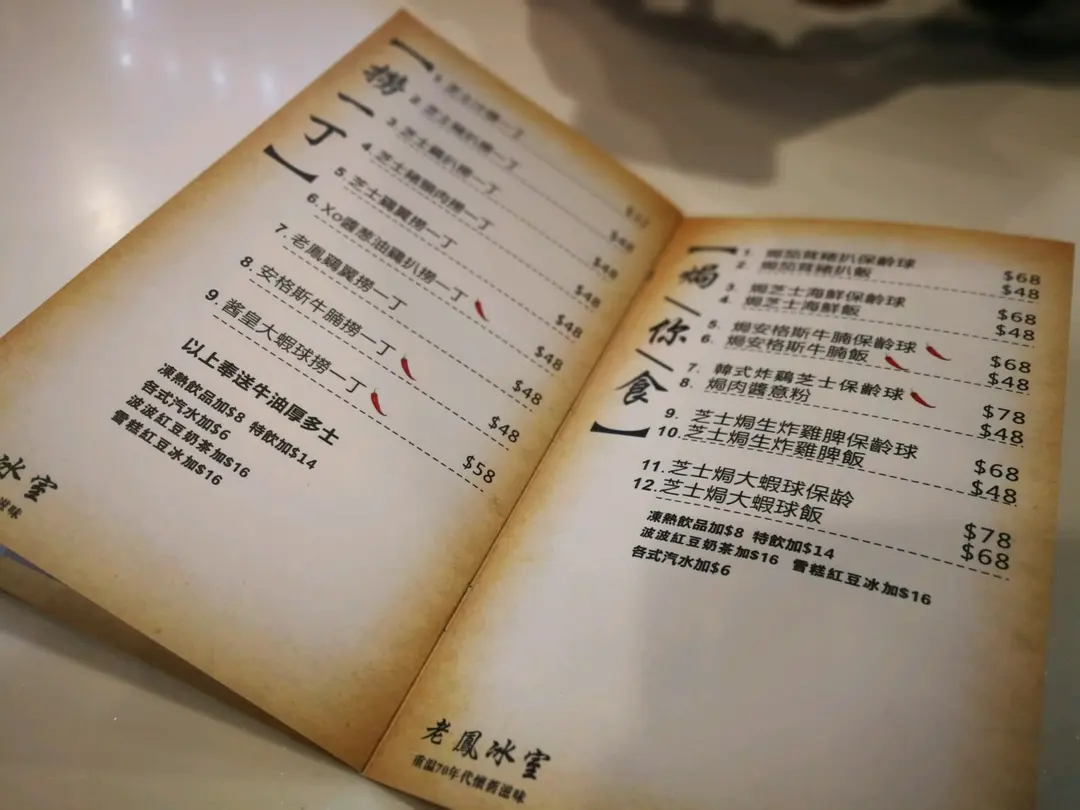 【撈一丁】
1. 芝士
2. 芝士豬扒撈一丁
3. 芝士雞扒撈一丁
4. 芝士豬頸肉撈一丁
5. 芝士鷄翼撈一丁
6. Xo醬葱油鷄扒撈一丁
7. 老鳳鷄翼撈一丁
8. 安格斯牛腩撈一丁
9. 酱皇大蝦球撈一丁
$48
$48
$48
$48
$48
$48
$48
$58
以上奉送牛油厚多士
凍熱飲品加$8 特飲加$14
各式汽水加$6
波波紅豆奶茶加$16
雪糕紅豆冰加$16
冰室
滋味
【焗一你一食】
1. 焗茄茸豬扒保齡球 $68
2. 焗茄茸豬扒飯 $48
3. 焗芝士海鮮保齡球 $68
4. 焗芝士海鮮飯 $48
5. 焗安格斯牛腩保齡球 $68
6. 焗安格斯牛腩飯 $48
7. 韓式炸鷄芝士保齡球 $78
8. 焗肉醬意粉 $48
9. 芝士焗生炸雞脾保齡球 $68
10. 芝士焗生炸雞脾飯 $48
11. 芝士焗大蝦球保龄 $78
12. 芝士焗大蝦球飯 $68
凍熱飲品加$8 特飲加$14
波波紅豆奶茶加$16 雪糕紅豆冰加$16
各式汽水加$6
老鳳冰室
重温70年代懷舊滋味